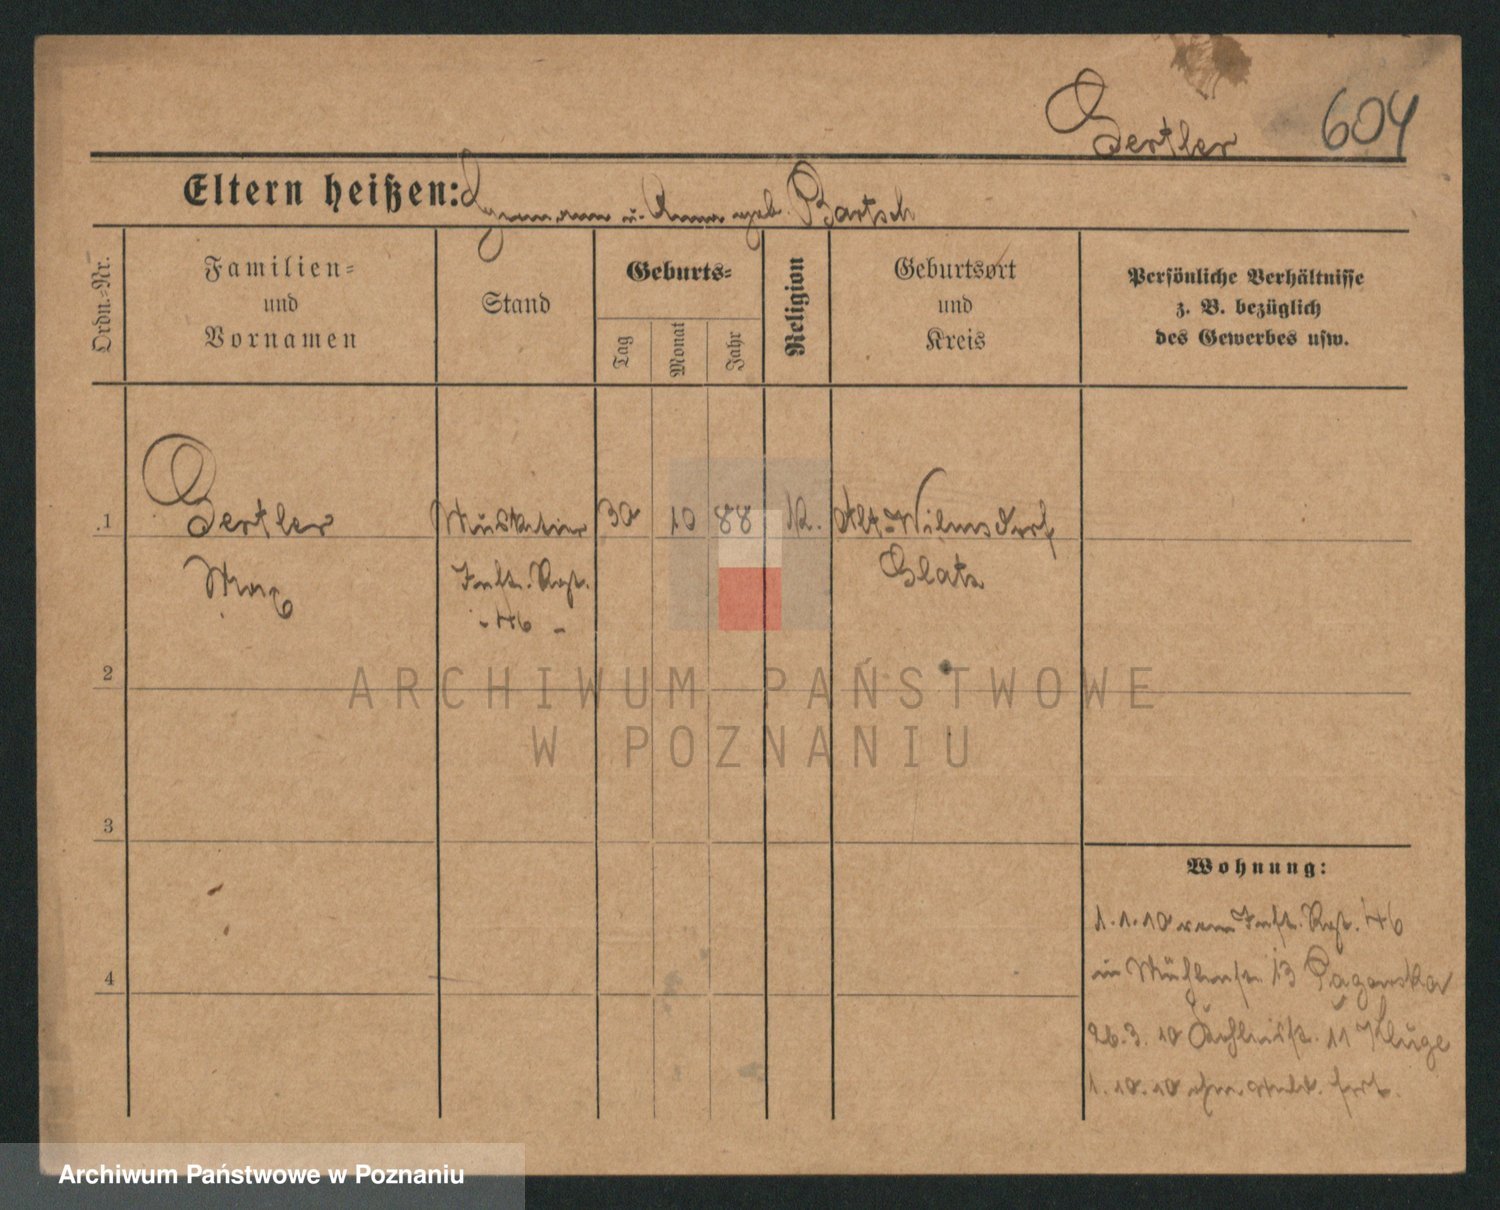 Oertler 604
Eltern heißen: Hermann u. Anna geb. Bartsch
Ordn.-Nr.
Familien-
und
Vornamen
Stand
Geburts-
Tag
Monat
Jahr
Religion
Geburtsort
und
Kreis
Persönliche Verhältnisse
z. B. bezüglich
des Gewerbes usw.
1 Oertler Musketier 30 10 88 K. Alt-Wilmsdorf
Max Inft. Rgt. Glatz
- 46 -
2
3
4
Wohnung:
1.1.10 vom Inft. Rgt. 46
in Mühlenstr 13
26.3.10 11 Kluge
1.10.10 fort.
ARCHIWUM PAŃSTWOWE
W POZNANIU
Archiwum Państwowe w Poznaniu